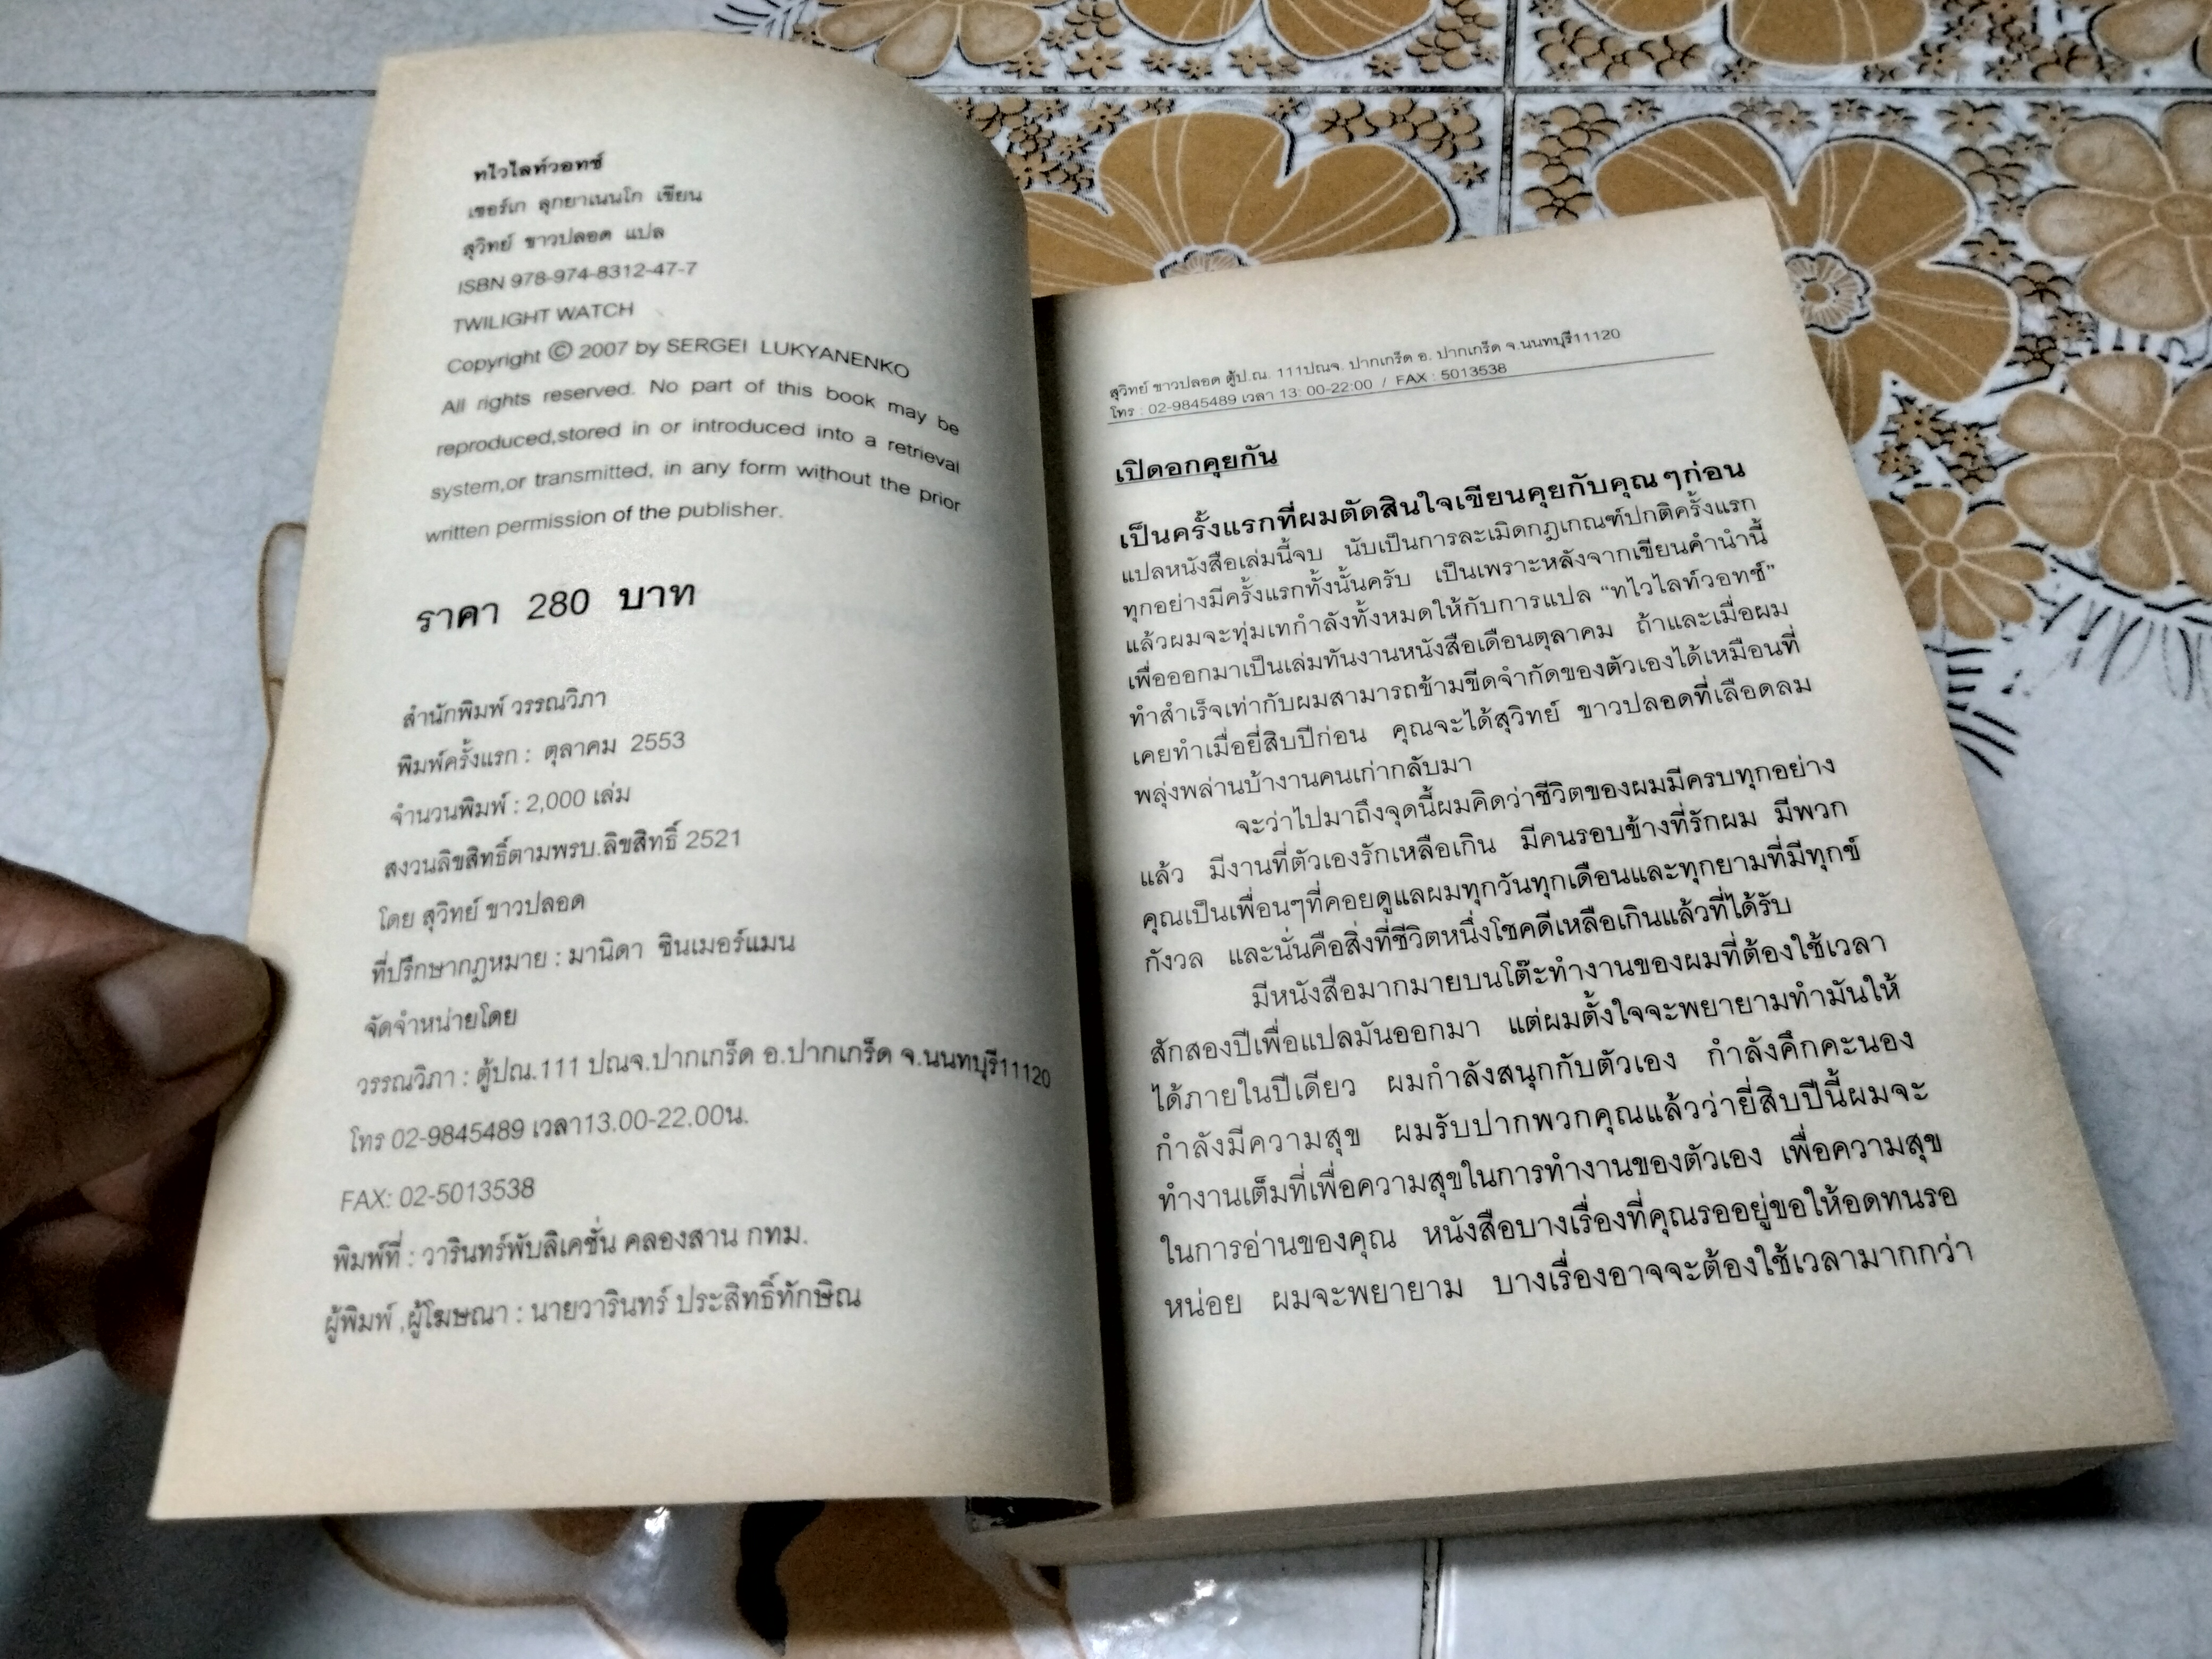 ทไวไลท์วอทช์
เซอร์เก ลุกยาเนนโก เขียน
สุวิทย์ ขาวปลอด แปล
ISBN 978-974-8312-47-7
TWILIGHT WATCH
Copyright © 2007 by SERGEI LUKYANENKO
All rights reserved. No part of this book may be
reproduced,stored in or introduced into a retrieval
system,or transmitted, in any form without the prior
written permission of the publisher.
ราคา 280 บาท
สำนักพิมพ์ วรรณวิภา
พิมพ์ครั้งแรก : ตุลาคม 2553
จำนวนพิมพ์ : 2,000 เล่ม
สงวนลิขสิทธิ์ตามพรบ.ลิขสิทธิ์ 2521
โดย สุวิทย์ ขาวปลอด
ที่ปรึกษากฎหมาย : มานิดา ซินเมอร์แมน
จัดจำหน่ายโดย
วรรณวิภา : ตู้ปณ.111 ปณจ.ปากเกร็ด อ.ปากเกร็ด จ.นนทบุรี11120
โทร 02-9845489 เวลา13.00-22.00น.
FAX: 02-5013538
พิมพ์ที่ : วารินทร์พับลิเคชั่น คลองสาน กทม.
ผู้พิมพ์ ,ผู้โฆษณา : นายวารินทร์ ประสิทธิ์ทักษิณ
สุวิทย์ ขาวปลอด ตู้ป.ณ. 111ปณจ. ปากเกร็ด อ. ปากเกร็ด จ.นนทบุรี11120
โทร : 02-9845489 เวลา 13: 00-22:00 / FAX : 5013538
เปิดอกคุยกัน
เป็นครั้งแรกที่ผมตัดสินใจเขียนคุยกับคุณๆก่อน
แปลหนังสือเล่มนี้จบ นับเป็นการละเมิดกฎเกณฑ์ปกติครั้งแรก
ทุกอย่างมีครั้งแรกทั้งนั้นครับ เป็นเพราะหลังจากเขียนคำนำนี้
แล้วผมจะทุ่มเทกำลังทั้งหมดให้กับการแปล “ทไวไลท์วอทช์”
เพื่อออกมาเป็นเล่มทันงานหนังสือเดือนตุลาคม ถ้าและเมื่อผม
ทำสำเร็จเท่ากับผมสามารถข้ามขีดจำกัดของตัวเองได้เหมือนที่
เคยทำเมื่อยี่สิบปีก่อน คุณจะได้สุวิทย์ ขาวปลอดที่เลือดลม
พลุ่งพล่านบ้างานคนเก่ากลับมา
จะว่าไปมาถึงจุดนี้ผมคิดว่าชีวิตของผมมีครบทุกอย่าง
แล้ว มีงานที่ตัวเองรักเหลือเกิน มีคนรอบข้างที่รักผม มีพวก
คุณเป็นเพื่อนๆที่คอยดูแลผมทุกวันทุกเดือนและทุกยามที่มีทุกข์
กังวล และนั่นคือสิ่งที่ชีวิตหนึ่งโชคดีเหลือเกินแล้วที่ได้รับ
มีหนังสือมากมายบนโต๊ะทำงานของผมที่ต้องใช้เวลา
สักสองปีเพื่อแปลมันออกมา แต่ผมตั้งใจจะพยายามทำมันให้
ได้ภายในปีเดียว ผมกำลังสนุกกับตัวเอง กำลังคึกคะนอง
กำลังมีความสุข ผมรับปากพวกคุณแล้วว่ายี่สิบปีนี้ผมจะ
ทำงานเต็มที่เพื่อความสุขในการทำงานของตัวเอง เพื่อความสุข
ในการอ่านของคุณ หนังสือบางเรื่องที่คุณรออยู่ขอให้อดทนรอ
หน่อย ผมจะพยายาม บางเรื่องอาจจะต้องใช้เวลามากกว่า